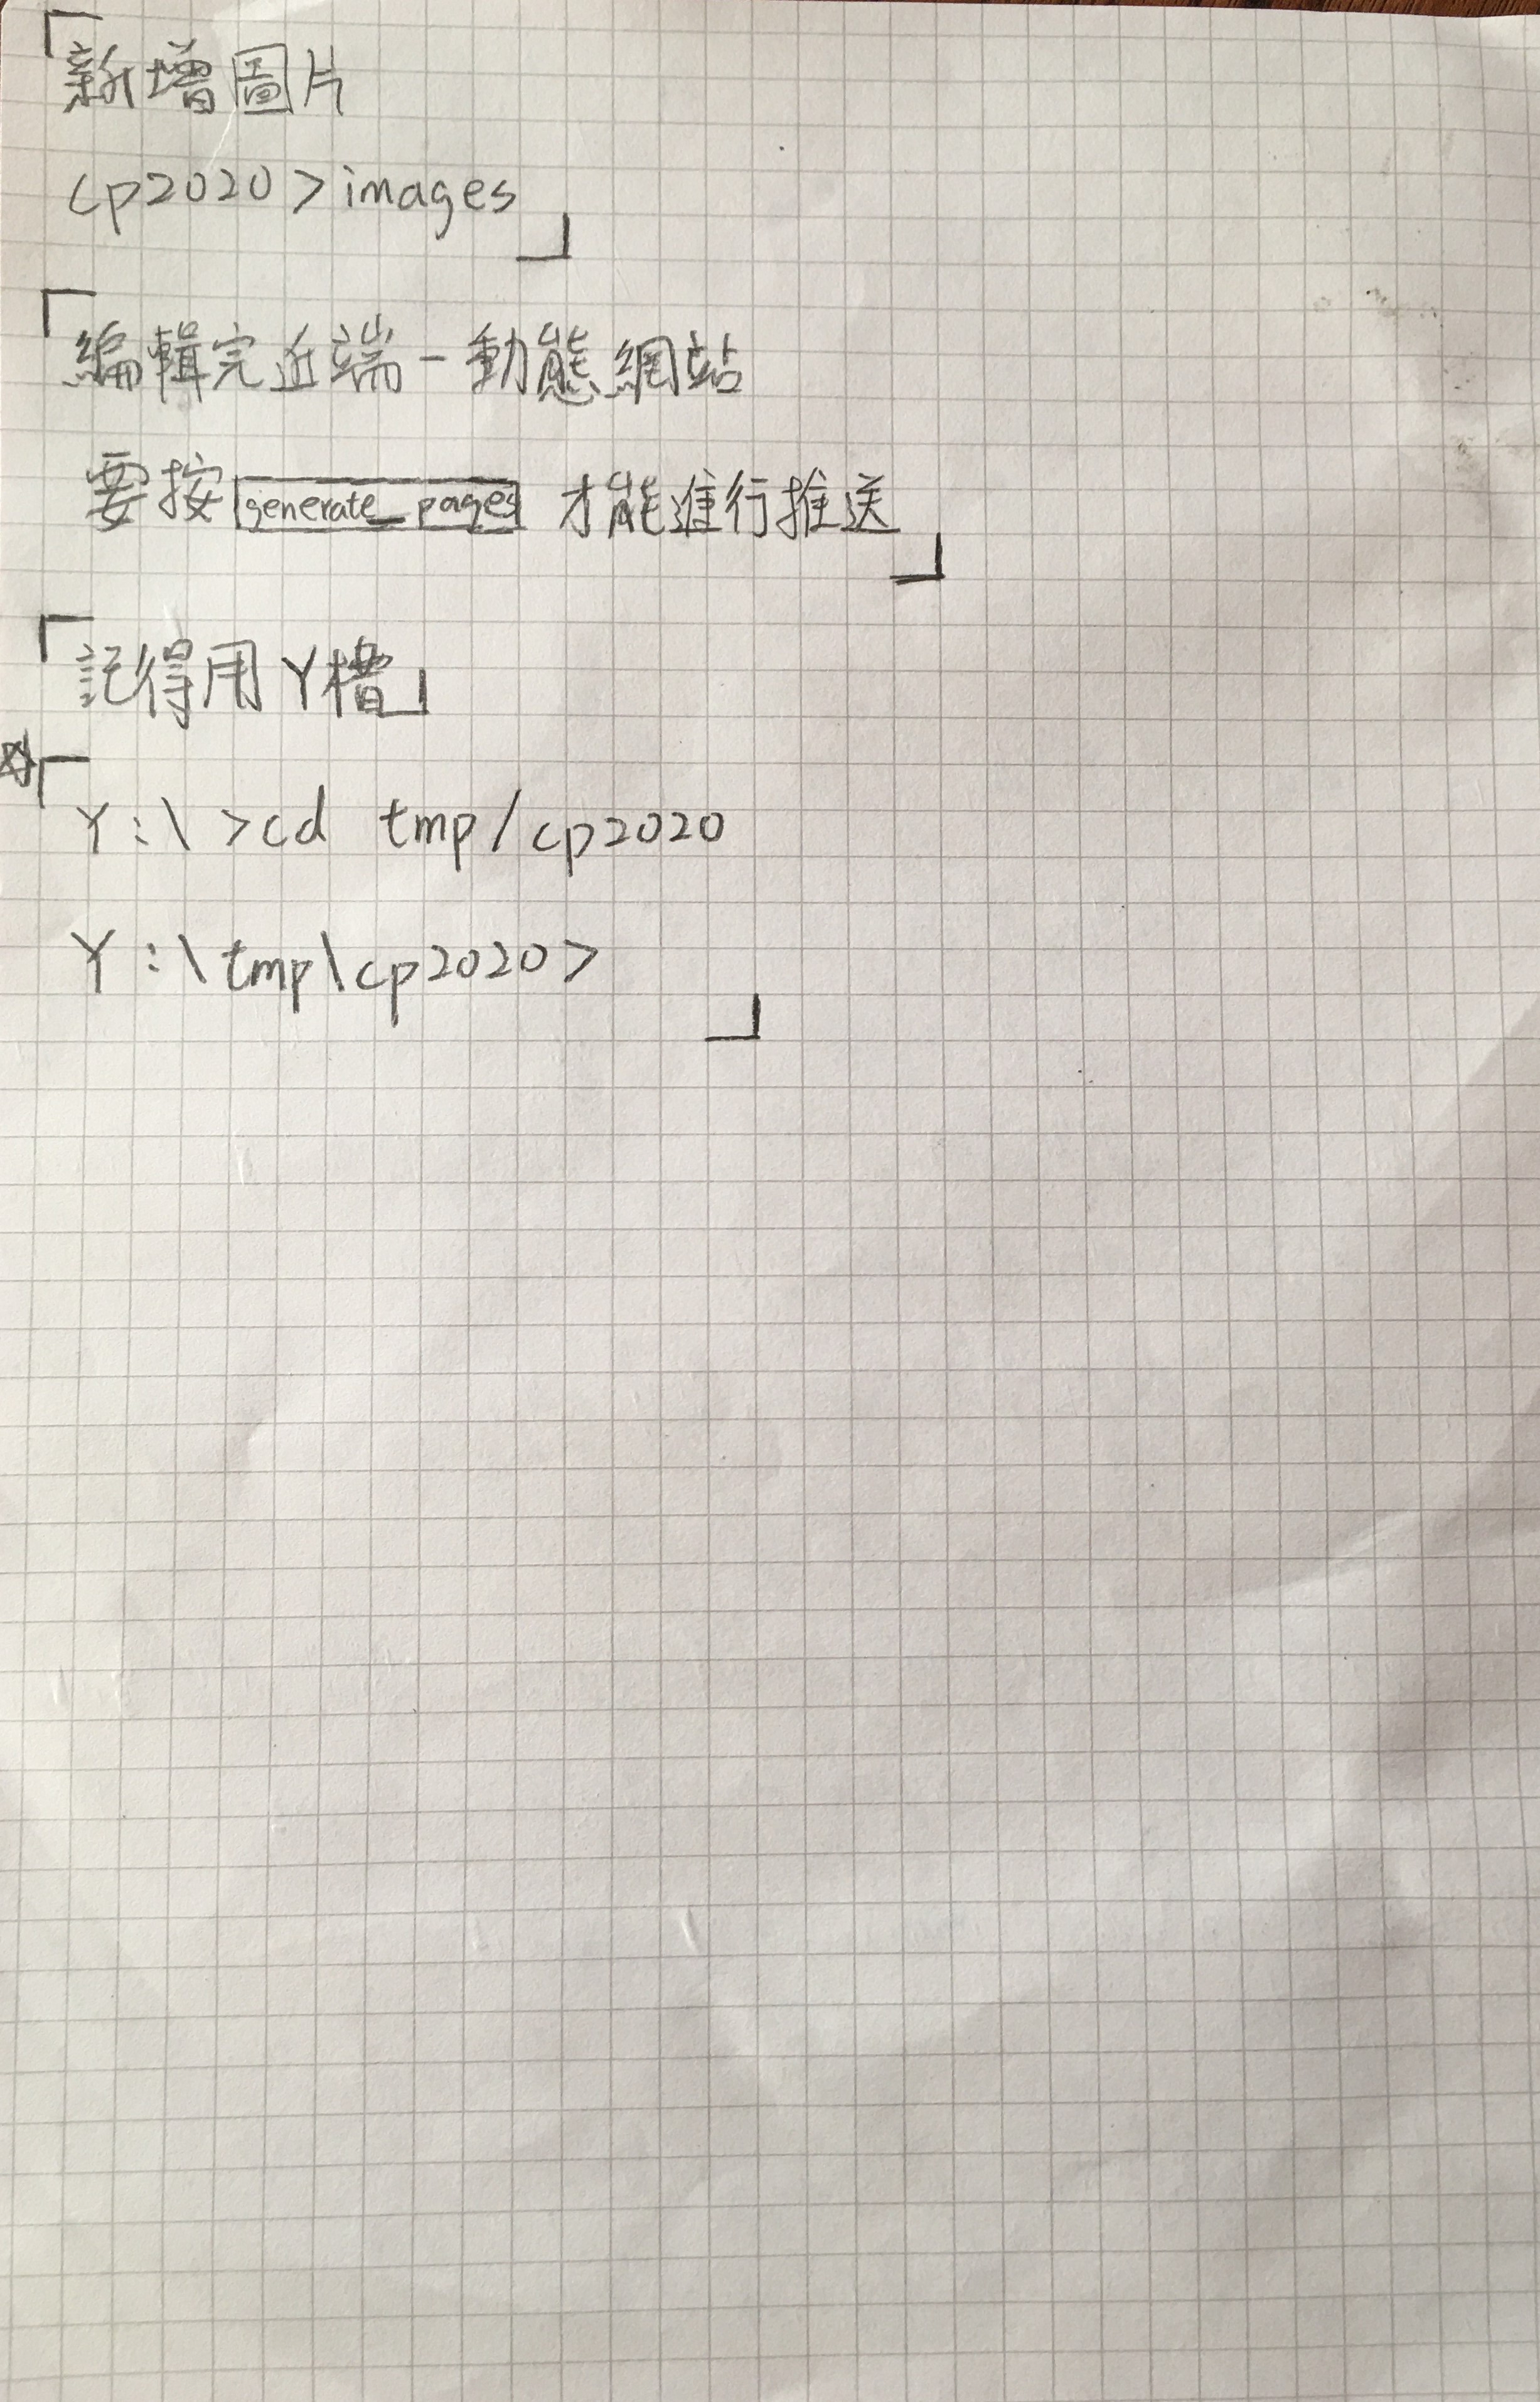 「新增圖片
cp2020>images」
「編輯完近端-動態網站
要按generate_pages 才能進行推送」
「記得用Y槽」
☆「Y:\>cd tmp/cp2020
Y:\tmp\cp2020>」